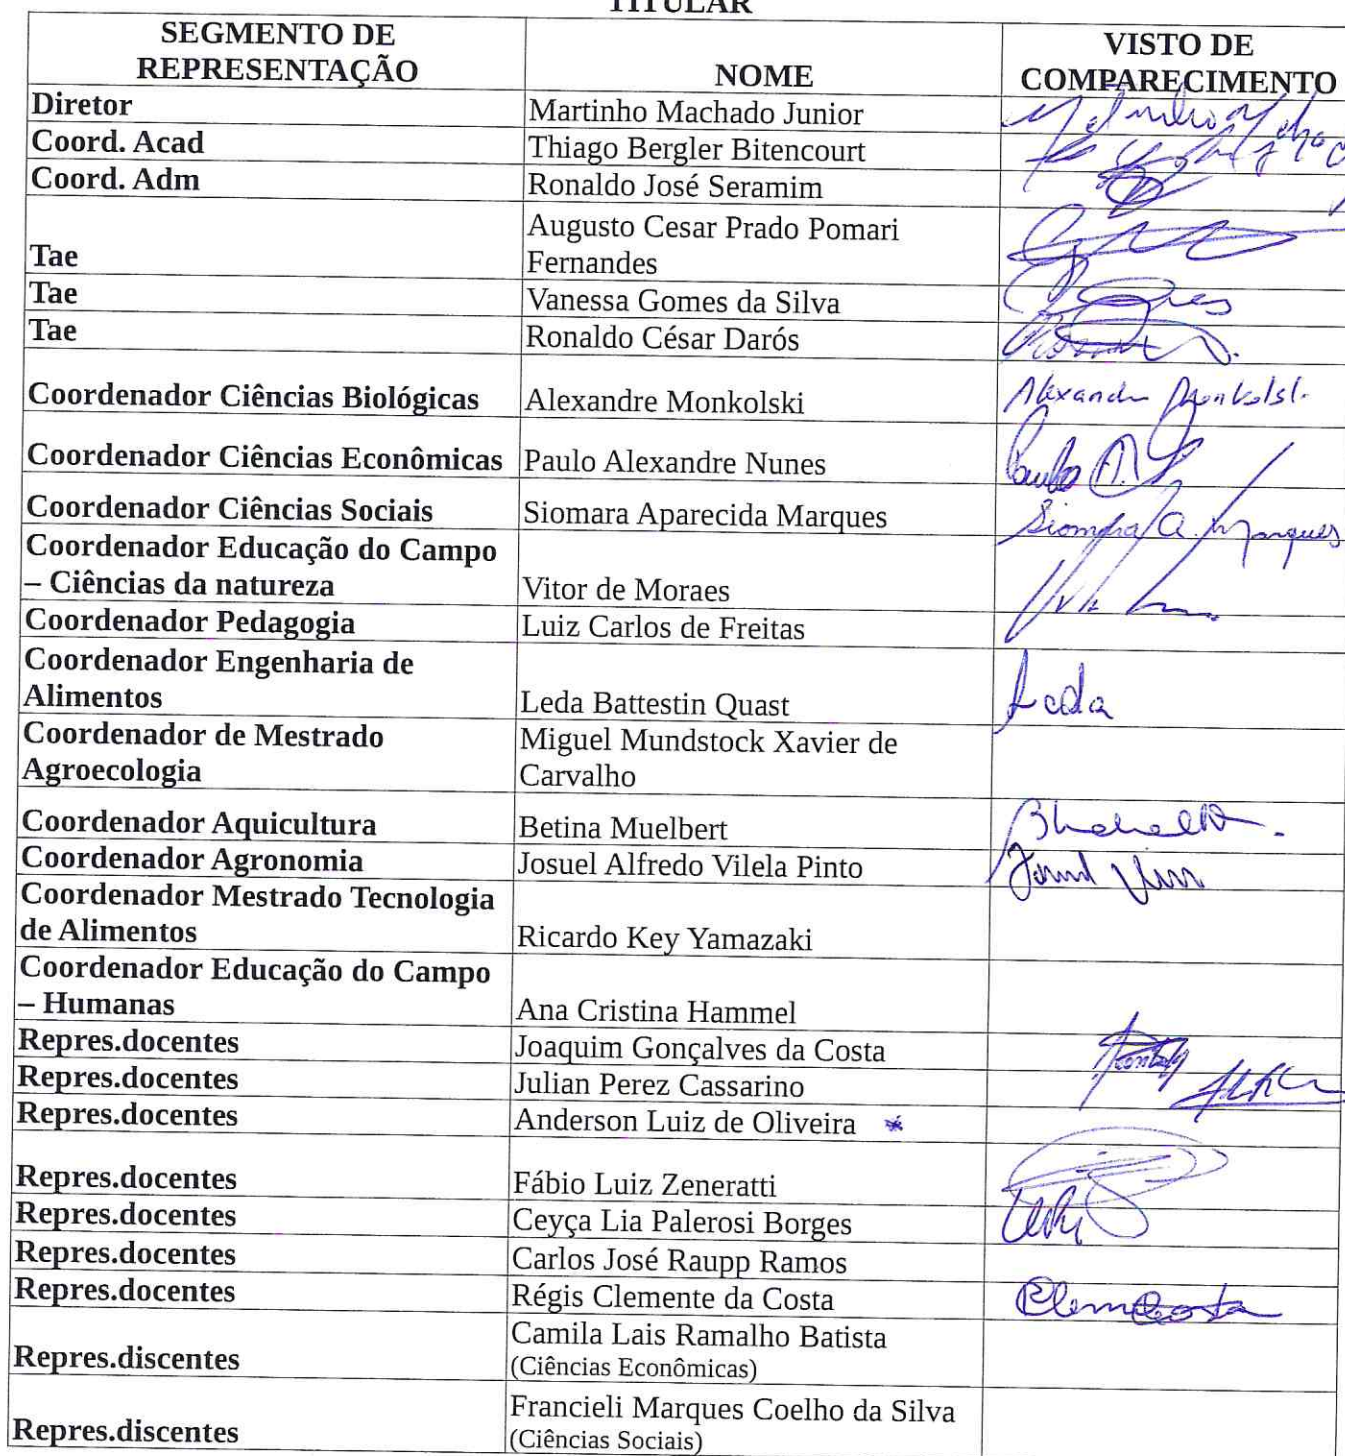 TITULAR
SEGMENTO DE
REPRESENTAÇÃO
NOME
VISTO DE
COMPARECIMENTO
Diretor
Martinho Machado Junior
Coord. Acad
Thiago Bergler Bitencourt
Coord. Adm
Ronaldo José Seramim
Augusto Cesar Prado Pomari
Tae
Fernandes
Tae
Vanessa Gomes da Silva
Tae
Ronaldo César Darós
Coordenador Ciências Biológicas
Alexandre Monkolski
Coordenador Ciências Econômicas
Paulo Alexandre Nunes
Coordenador Ciências Sociais
Siomara Aparecida Marques
Siomara A. Marques
Coordenador Educação do Campo
– Ciências da natureza
Vitor de Moraes
Coordenador Pedagogia
Luiz Carlos de Freitas
Coordenador Engenharia de
Alimentos
Leda Battestin Quast
Leda
Coordenador de Mestrado
Agroecologia
Miguel Mundstock Xavier de
Carvalho
Coordenador Aquicultura
Betina Muelbert
Coordenador Agronomia
Josuel Alfredo Vilela Pinto
Coordenador Mestrado Tecnologia
de Alimentos
Ricardo Key Yamazaki
Coordenador Educação do Campo
– Humanas
Ana Cristina Hammel
Repres.docentes
Joaquim Gonçalves da Costa
Repres.docentes
Julian Perez Cassarino
Repres.docentes
Anderson Luiz de Oliveira *
Repres.docentes
Fábio Luiz Zeneratti
Repres.docentes
Ceyça Lia Palerosi Borges
Repres.docentes
Carlos José Raupp Ramos
Repres.docentes
Régis Clemente da Costa
Camila Lais Ramalho Batista
Repres.discentes
(Ciências Econômicas)
Francieli Marques Coelho da Silva
Repres.discentes
(Ciências Sociais)